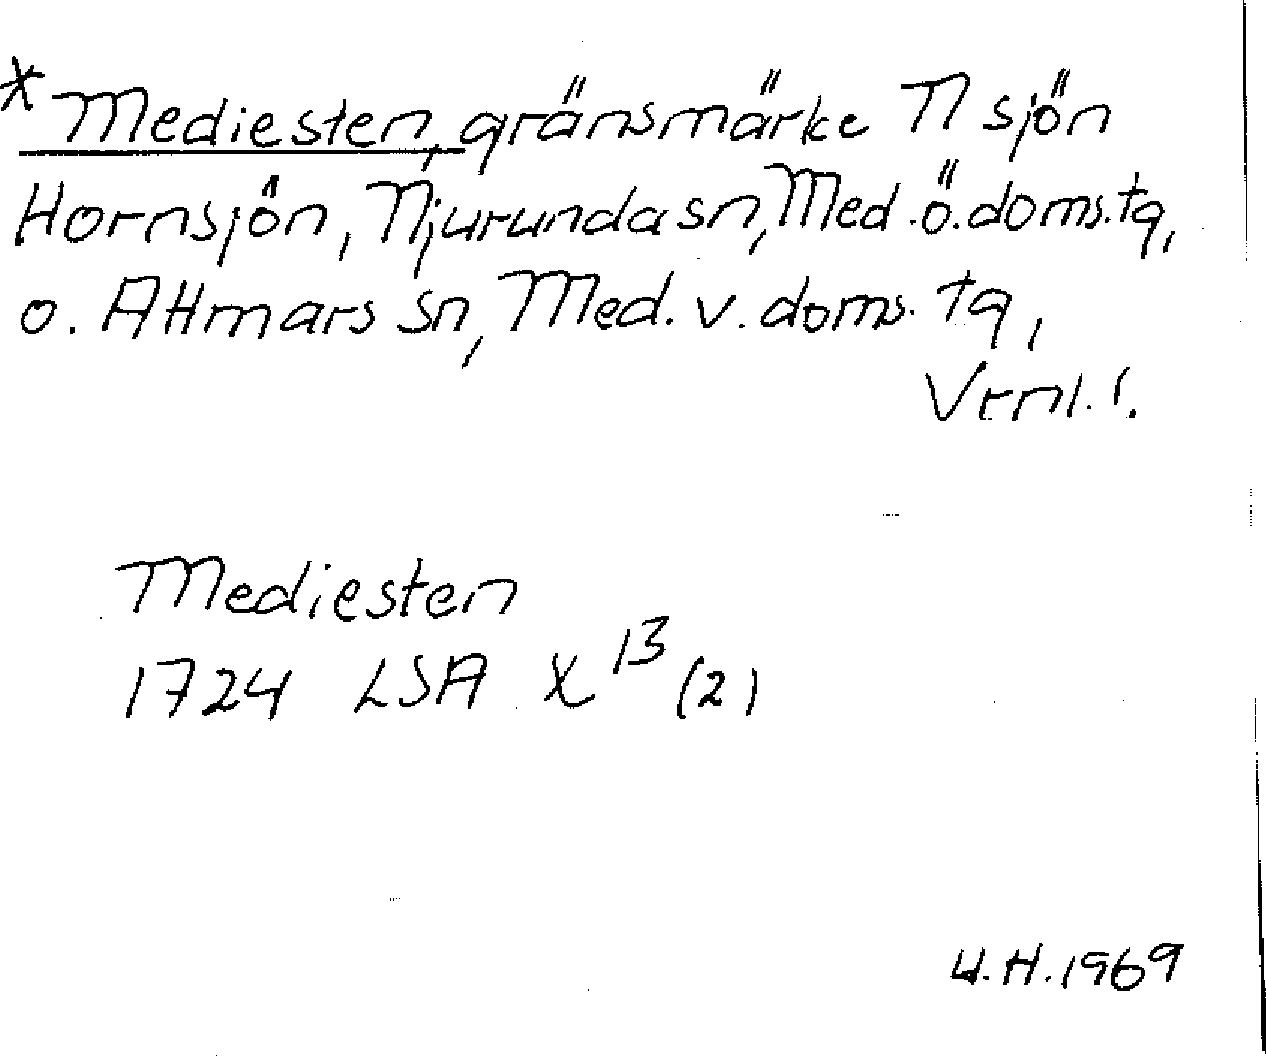 *Mediesten, gränsmärke N sjön
Hornsjön, Njurunda sn, Med. ö. doms. tg,
o. Attmars sn, Med. v. doms. tg,
Vrnl. l.
Mediesten
1724 LSA X 13 (2)
U.H. 1969